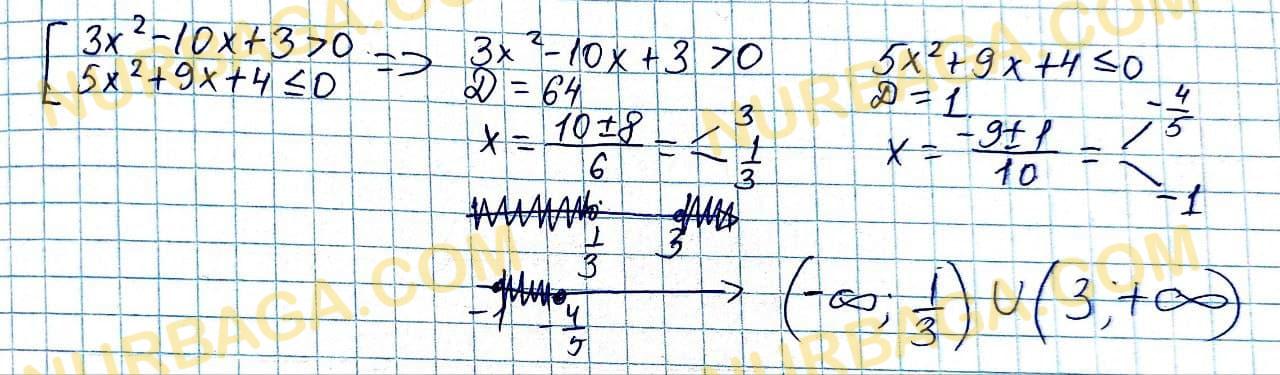 [ 3x² - 10x + 3 > 0
5x² + 9x + 4 ≤ 0 =>
3x² - 10x + 3 > 0
D = 64
x = (10 ± 8)/6 = < 3, 1/3
5x² + 9x + 4 ≤ 0
D = 1
x = (-9 ± 1)/10 = < -4/5, -1
1/3 3
-1 -4/5
(-∞; 1/3) ∪ (3; +∞)
NURBAGA.COM
NURBAGA.COM
NURBAGA.COM
NURBAGA.COM